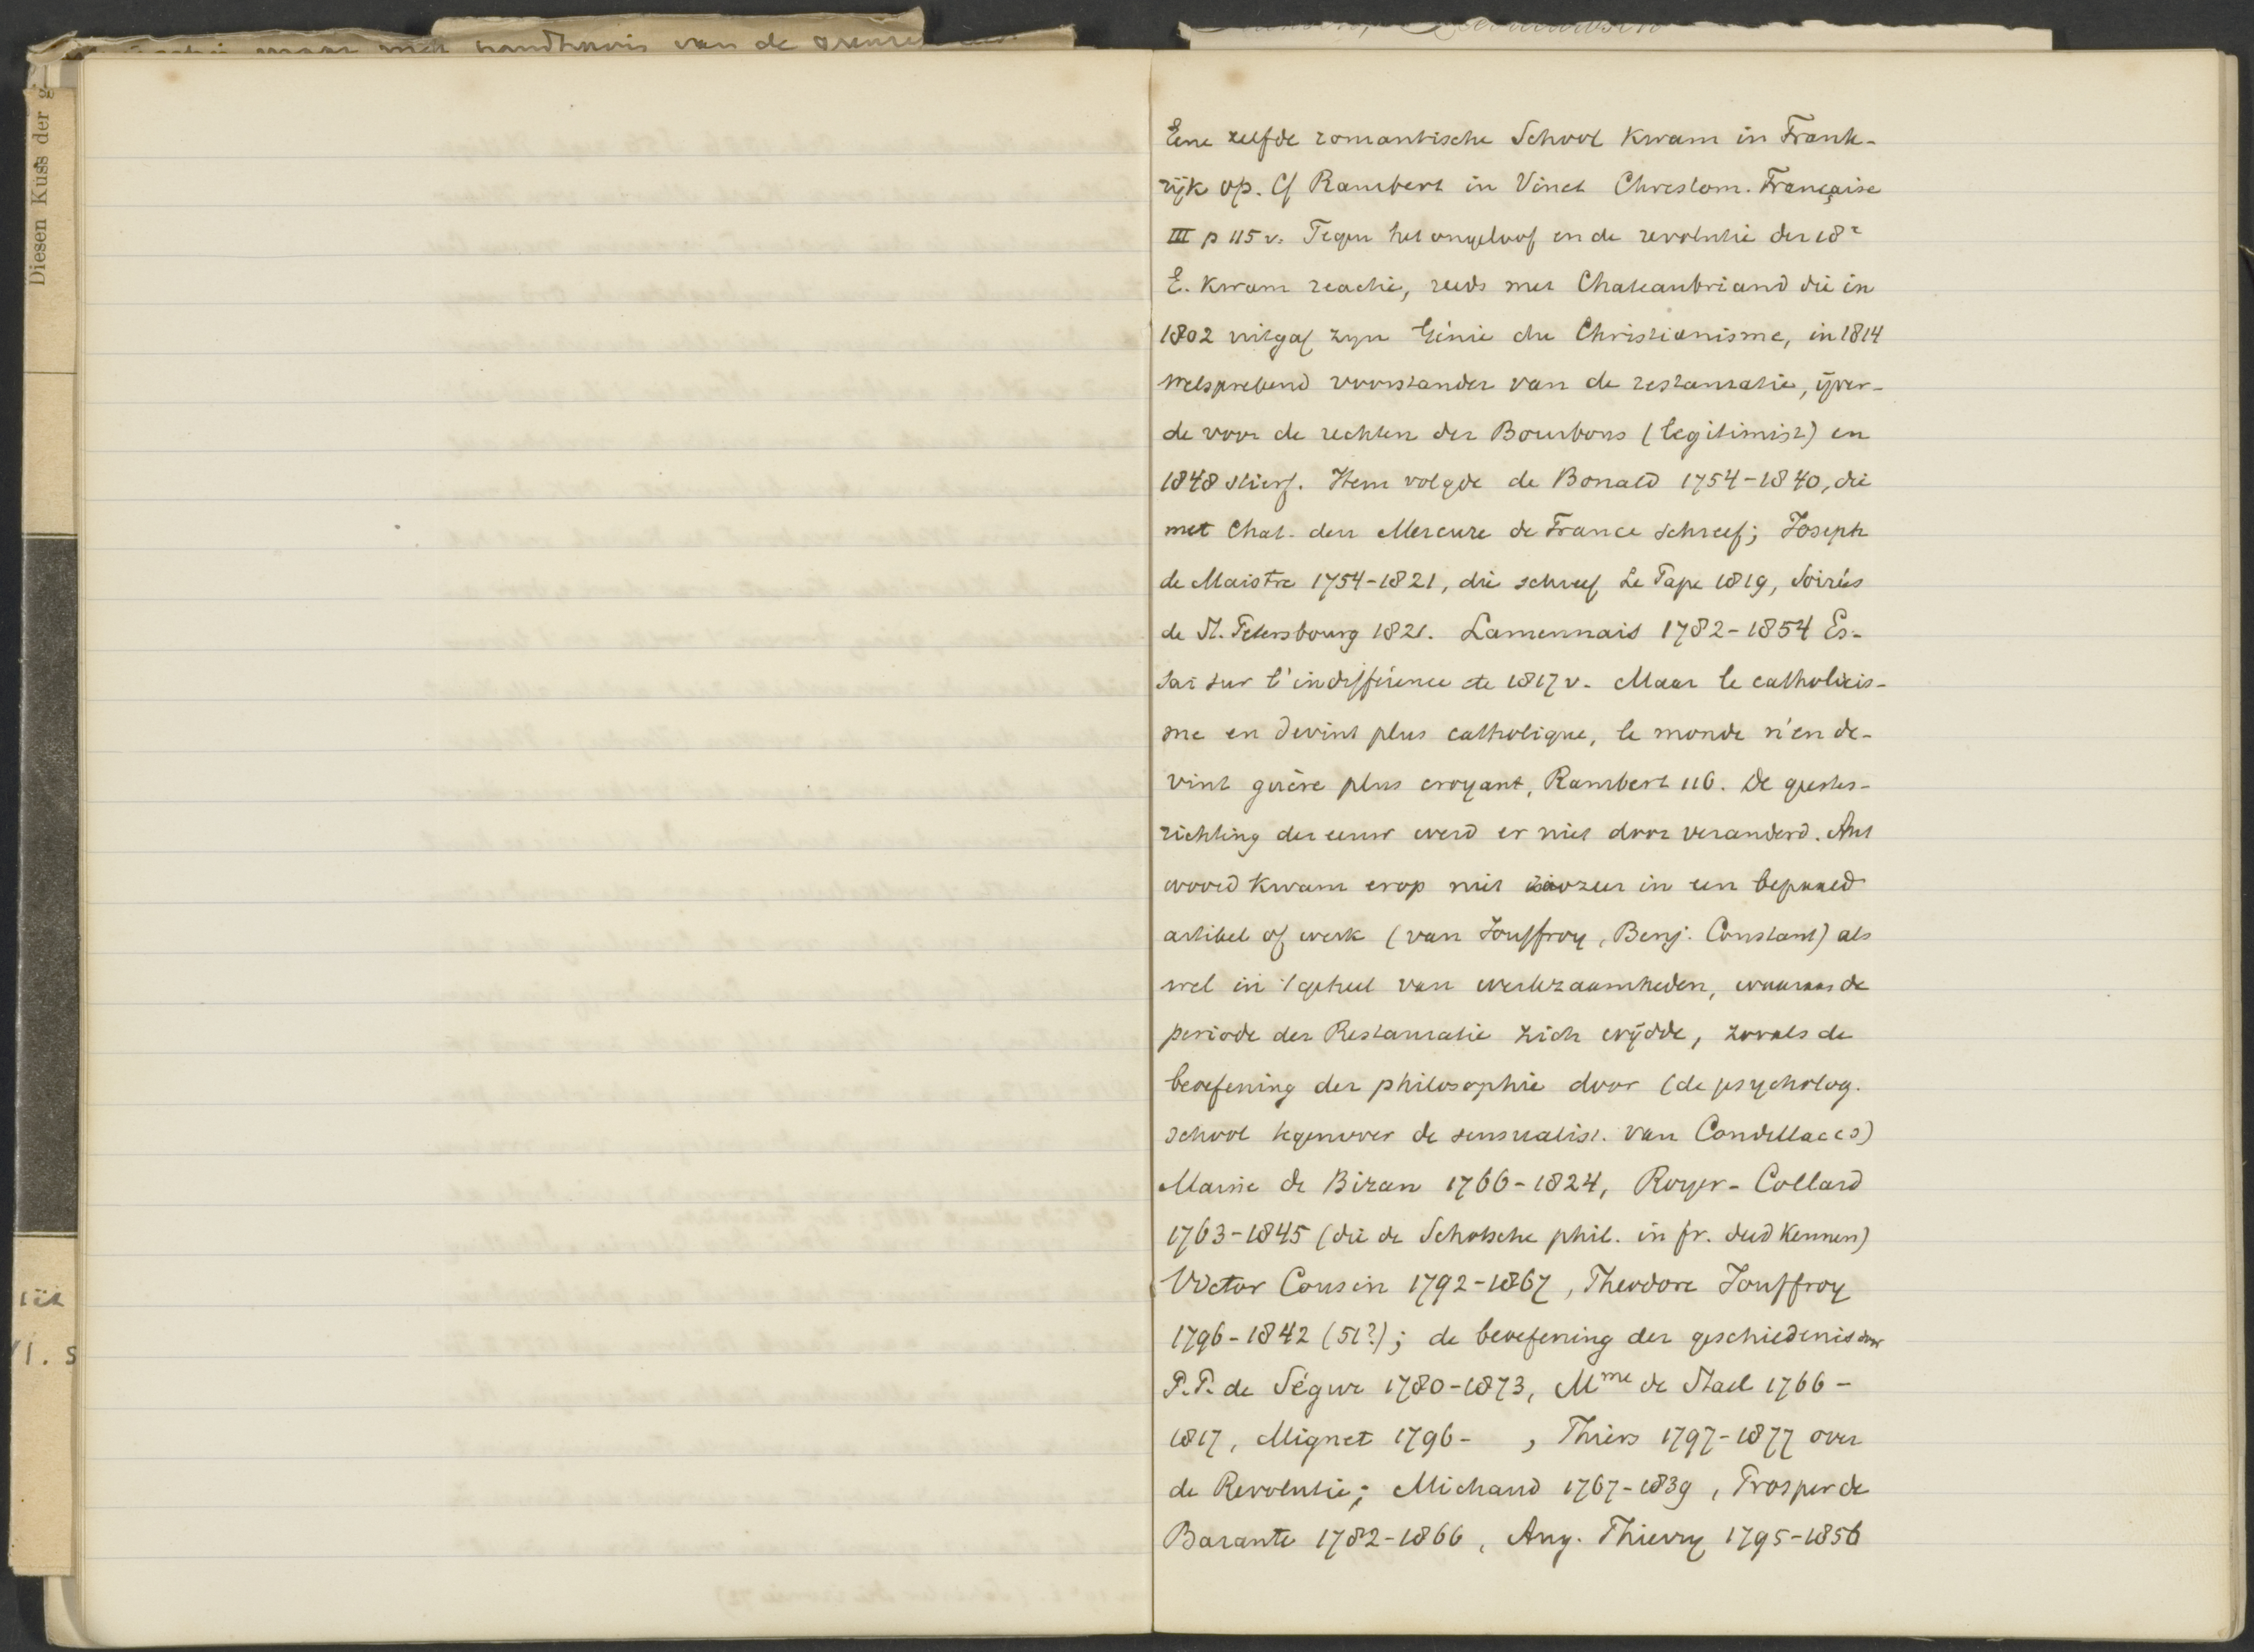 maar met handhavis van de grenze
Diesen Kuss der
Eene zelfde romantische School kwam in Frank-
rijk op. Cf Rambert in Vinet Chrestom. Française
III p 115 v. Tegen het ongeloof en de revolutie der 18e
E. kwam reactie, reeds met Chateaubriand die in
1802 uitgaf zyn Génie du Christianisme, in 1814
welsprekend voorstander van de restauratie, ijver-
de voor de rechten der Bourbons (legitimist) en
1848 stierf. Hem volgde de Bonald 1754-1840, die
met Chat. den Mercure de France schreef; Joseph
de Maistre 1754-1821, die schreef Le Pape 1819, Soirées
de St. Petersbourg 1821. Lamennais 1782-1854 Es-
sai sur l'indifférence etc 1817 v. Maar le catholicis-
me en devint plus catholique, le monde n'en de-
vint guère plus croyant, Rambert 116. De geestes-
richting der eeuw werd er niet door veranderd. Ant
woord kwam erop niet zoozeer in een bepaald
artikel of werk (van Jouffroy, Benj. Constant) als
wel in 't geheel van werkzaamheden, waaraan de
periode der Restauratie zich wijdde, zooals de
beoefening der philosophie door (de psycholog.
school tegenover de sensualist. van Condillac es)
Maine de Biran 1766-1824, Royer-Collard
1763-1845 (die de Schotsche phil. in fr. deed kennen)
Victor Cousin 1792-1867, Theodore Jouffroy
1796-1842 (51?); de beoefening der geschiedenis door
P.P. de Ségur 1780-1873, Mme de Stael 1766-
1817, Mignet 1796- , Thiers 1797-1877 over
de Revolutie; Michaud 1767-1839, Prosper de
Barante 1782-1866, Aug. Thierry 1795-1856